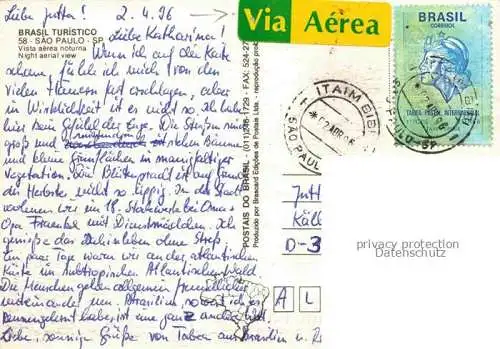 Liebe Jutta! 2.4.96
BRASIL TURÍSTICO
58 - SÃO PAULO - SP
Vista aérea noturna
Night aerial view
Liebe Katharina!
Wenn ich auf die Karte
schaue, fühle ich mich von den
vielen Häusern fast erschlagen, aber
in Wirklichkeit ist es nicht so. Ich habe
hier kein Gefühl der Enge. Die Straßen
Bäume und
und kleine Grünflächen in mannigfaltiger
Vegetation. Die Blütenpracht ist auf Grund
des Herbstes nicht so üppig. In der Stadt
wohnen wir im 18. Stockwerk bei Oma
Opa Fraenkel mit Dienstmädchen. Ich
genieße das Leben ohne Streß.
Ein paar Tage waren wir an der atlantischen
Küste im subtropischen Atlantischen Wald.
Die Menschen gehen allgemein freundlicher
miteinander um. Brasilien, soweit ich es
kennengelernt habe, ist eine ganz andere Welt.
Liebe, sonnige Grüße von Tabea aus Brasilien u.
POSTAIS DO BRASIL - (011) 246-1729 - FAX: 524-27
Produzido por Brascard Edições de Postais Ltda. - reprodução pro
Via Aérea
BRASIL
CORREIO
ITAIM BIBI
02 ABR 96
SÃO PAUL
PAULO-SP
Jutt
Käll
D-3
A L
privacy protection
Datenschutz